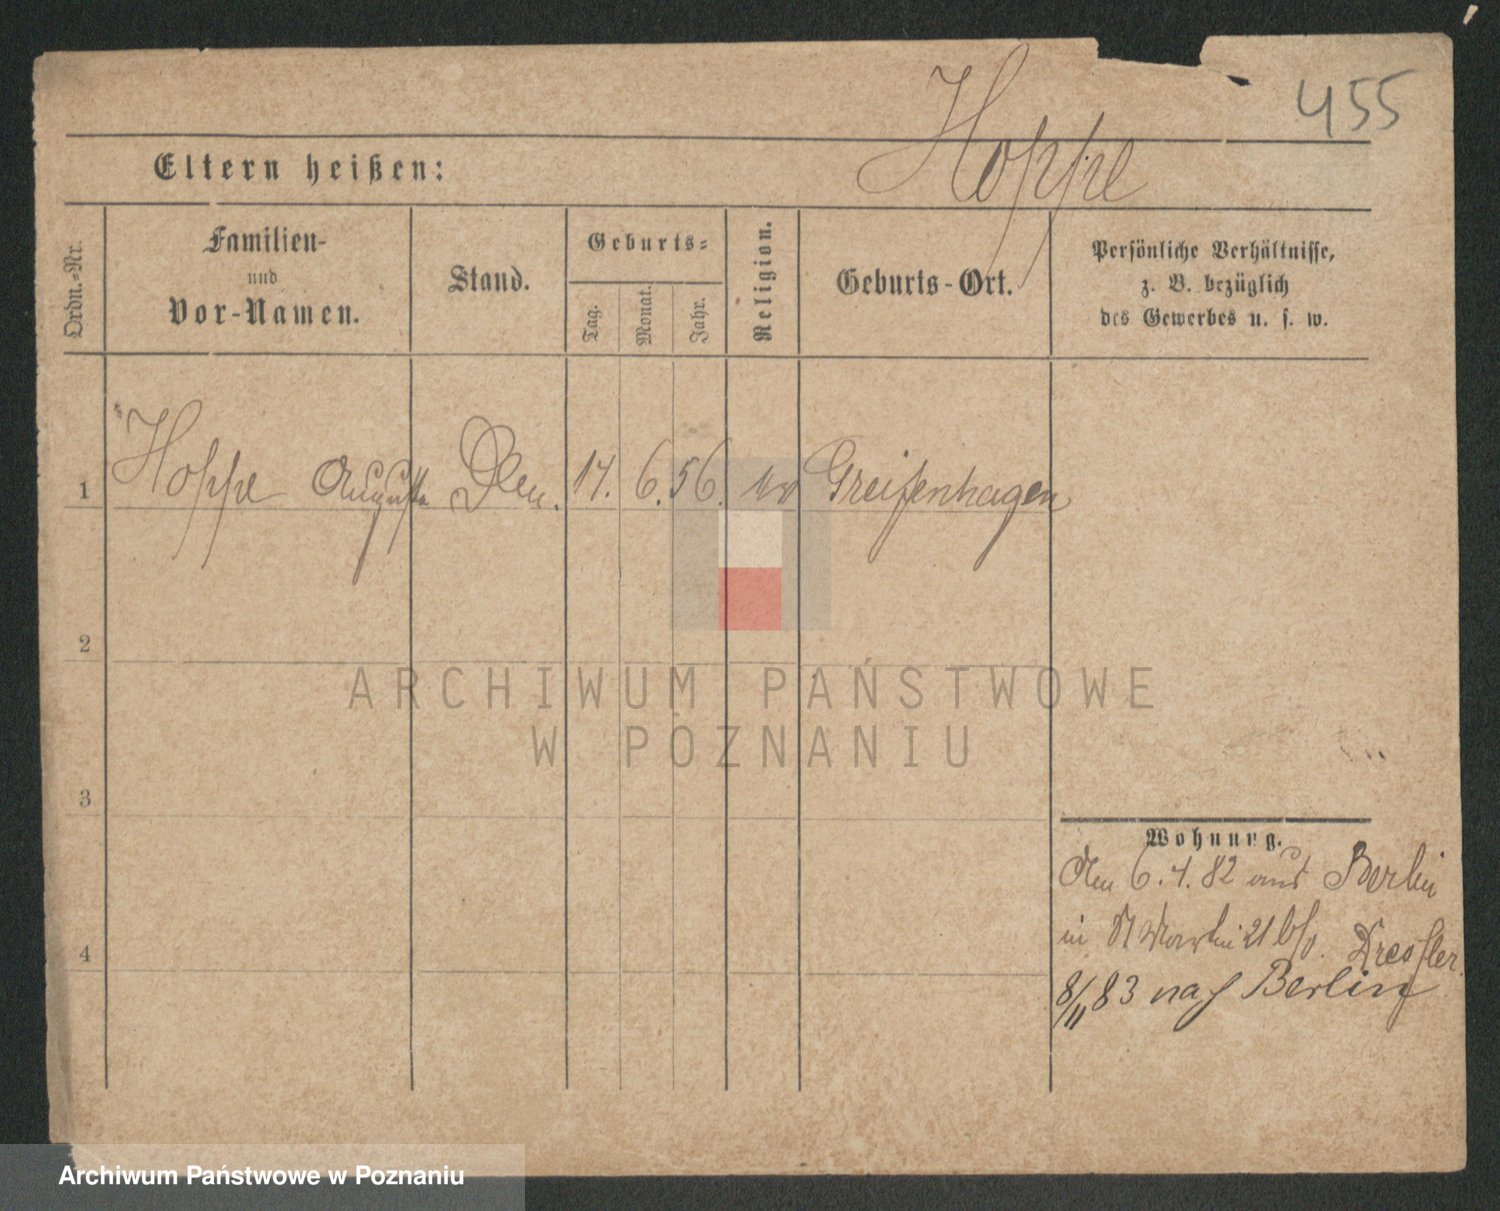 455
Hoppe
Eltern heißen:
Ordn.-Nr.
Familien-
und
Vor-Namen.
Stand.
Geburts-
Tag.
Monat.
Jahr.
Religion.
Geburts-Ort.
Persönliche Verhältnisse,
z. B. bezüglich
des Gewerbes u. s. w.
1 Hoppe Auguste 6. 56. Greifenhagen
2
3
4
Wohnung.
Am 6. 4. 82 aus Berlin
in St Martin 21 b/
8/11 83 nach Berlin
ARCHIWUM PAŃSTWOWE
W POZNANIU
Archiwum Państwowe w Poznaniu